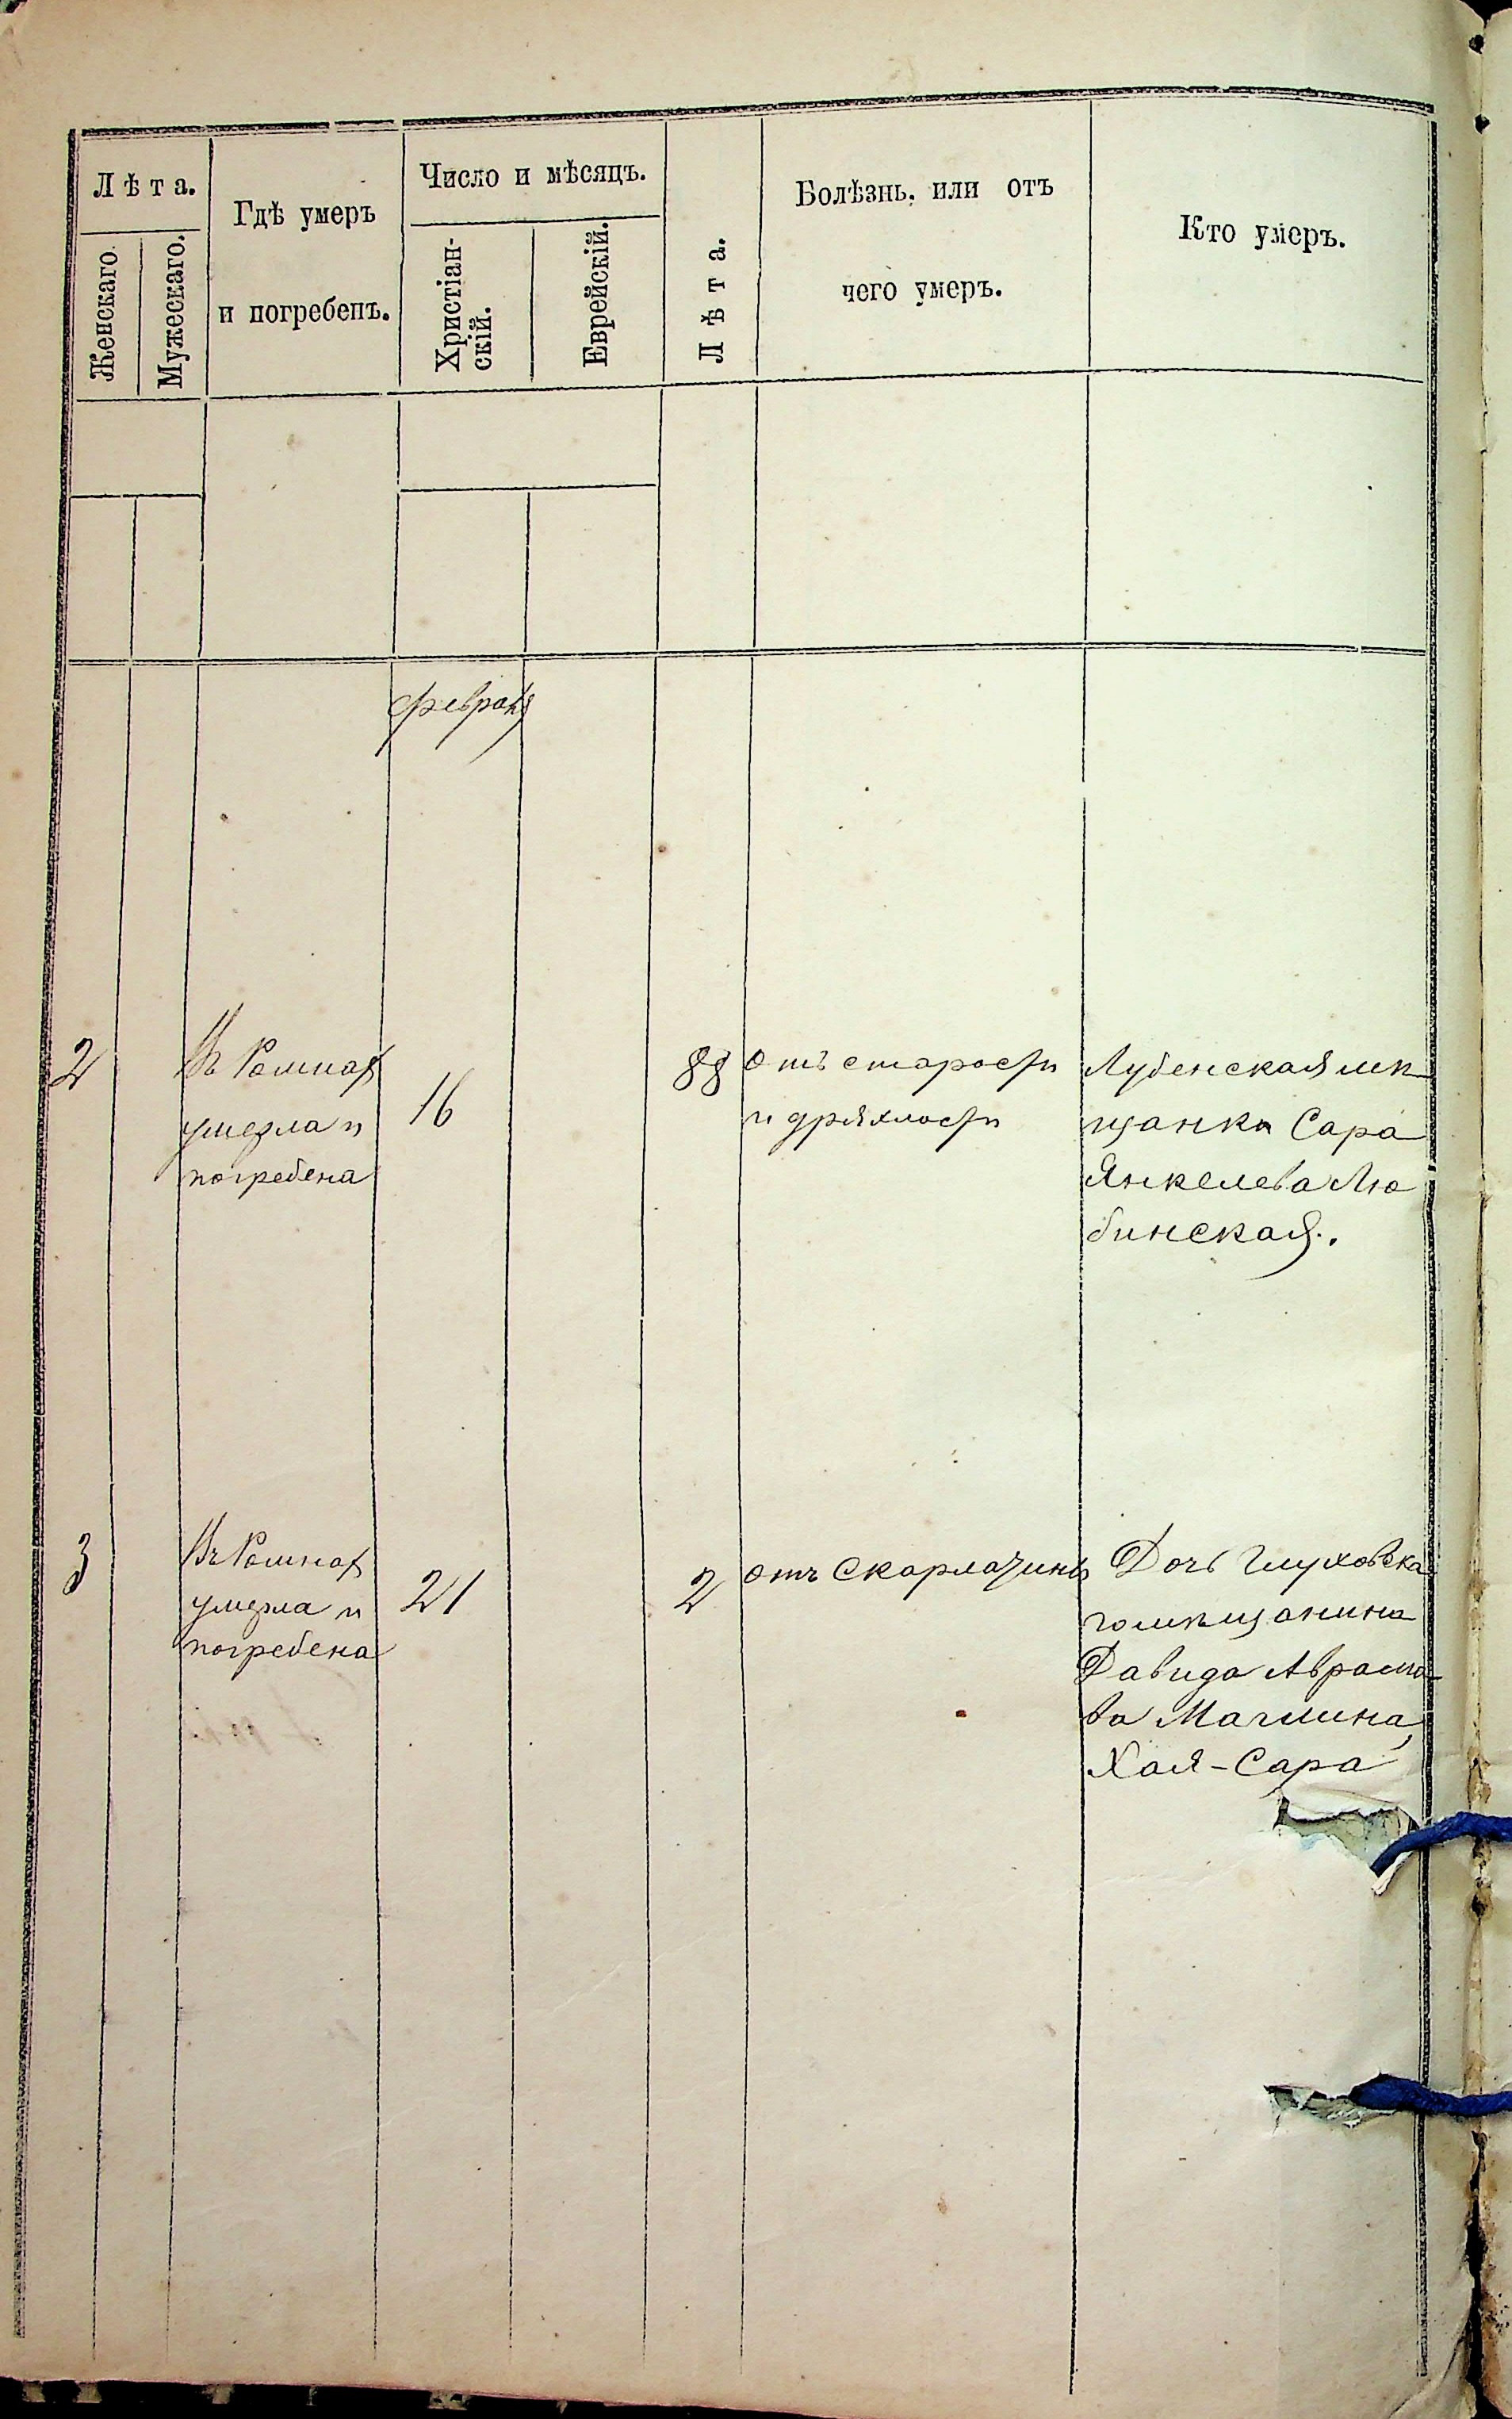 Лѣта.
Женскаго.
Мужескаго.
Гдѣ умеръ
и погребенъ.
Число и мѣсяцъ.
Христіан-
скій.
Еврейскій.
Лѣта.
Болѣзнь, или отъ
чего умеръ.
Кто умеръ.
февраля
2
Въ Ромнах
умерла и
погребена
16
88
отъ старости
и дряхлости
Лубенская мѣ
щанка Сара
Янкелева Лю
бинская.
3
Въ Ромнах
умерла и
погребена
21
2
отъ скарлатины
Дочь Глуховска
го мѣщанина
Давида Аврамо-
ва Магмина,
Хая-Сара